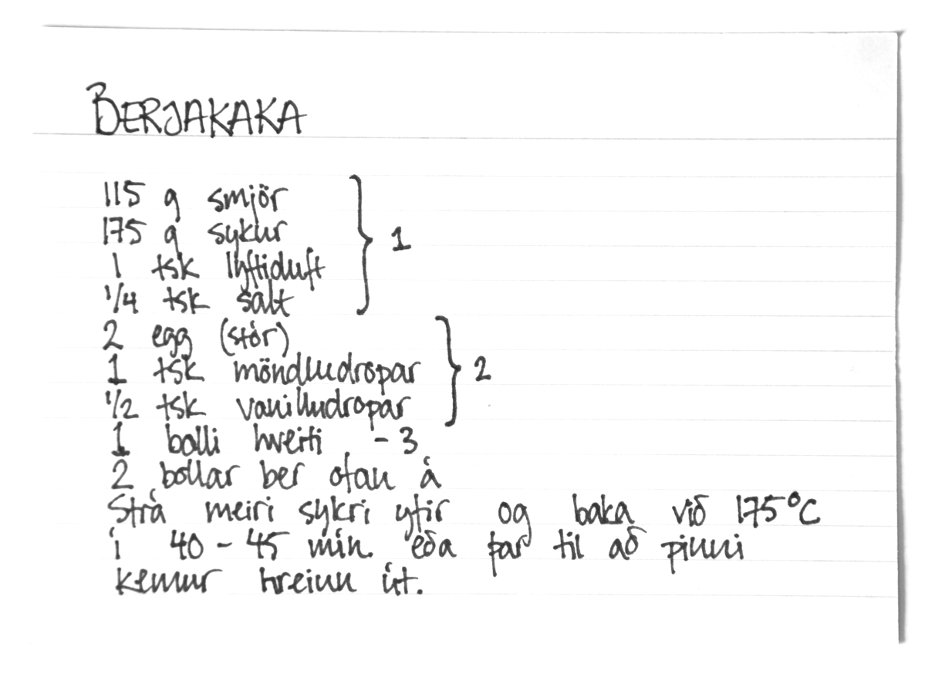 BERJAKAKA
115 g smjör
175 g sykur } 1
1 tsk lyftiduft
1/4 tsk salt
2 egg (stór)
1 tsk möndludropar } 2
1/2 tsk vanilludropar
1 bolli hveiti - 3
2 bollar ber ofan á
Strá meiri sykri yfir og baka við 175°C
í 40 - 45 mín. eða þar til að pinni
kemur hreinn út.